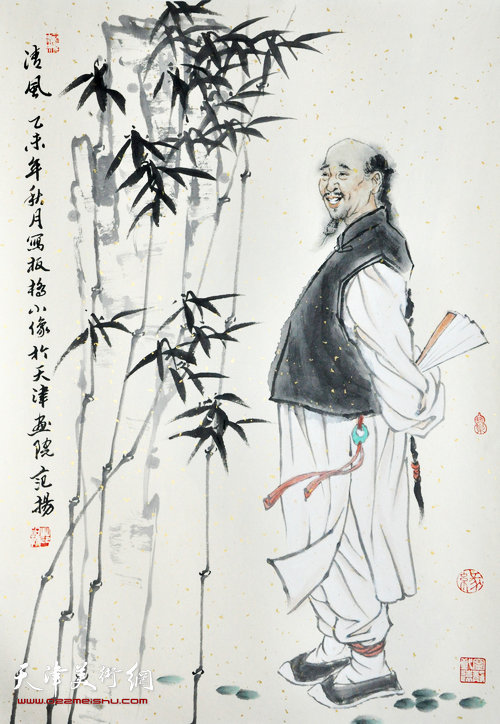 清风 乙未年秋月写板桥小像於天津画院 范扬
天津美術網
www.022meishu.com